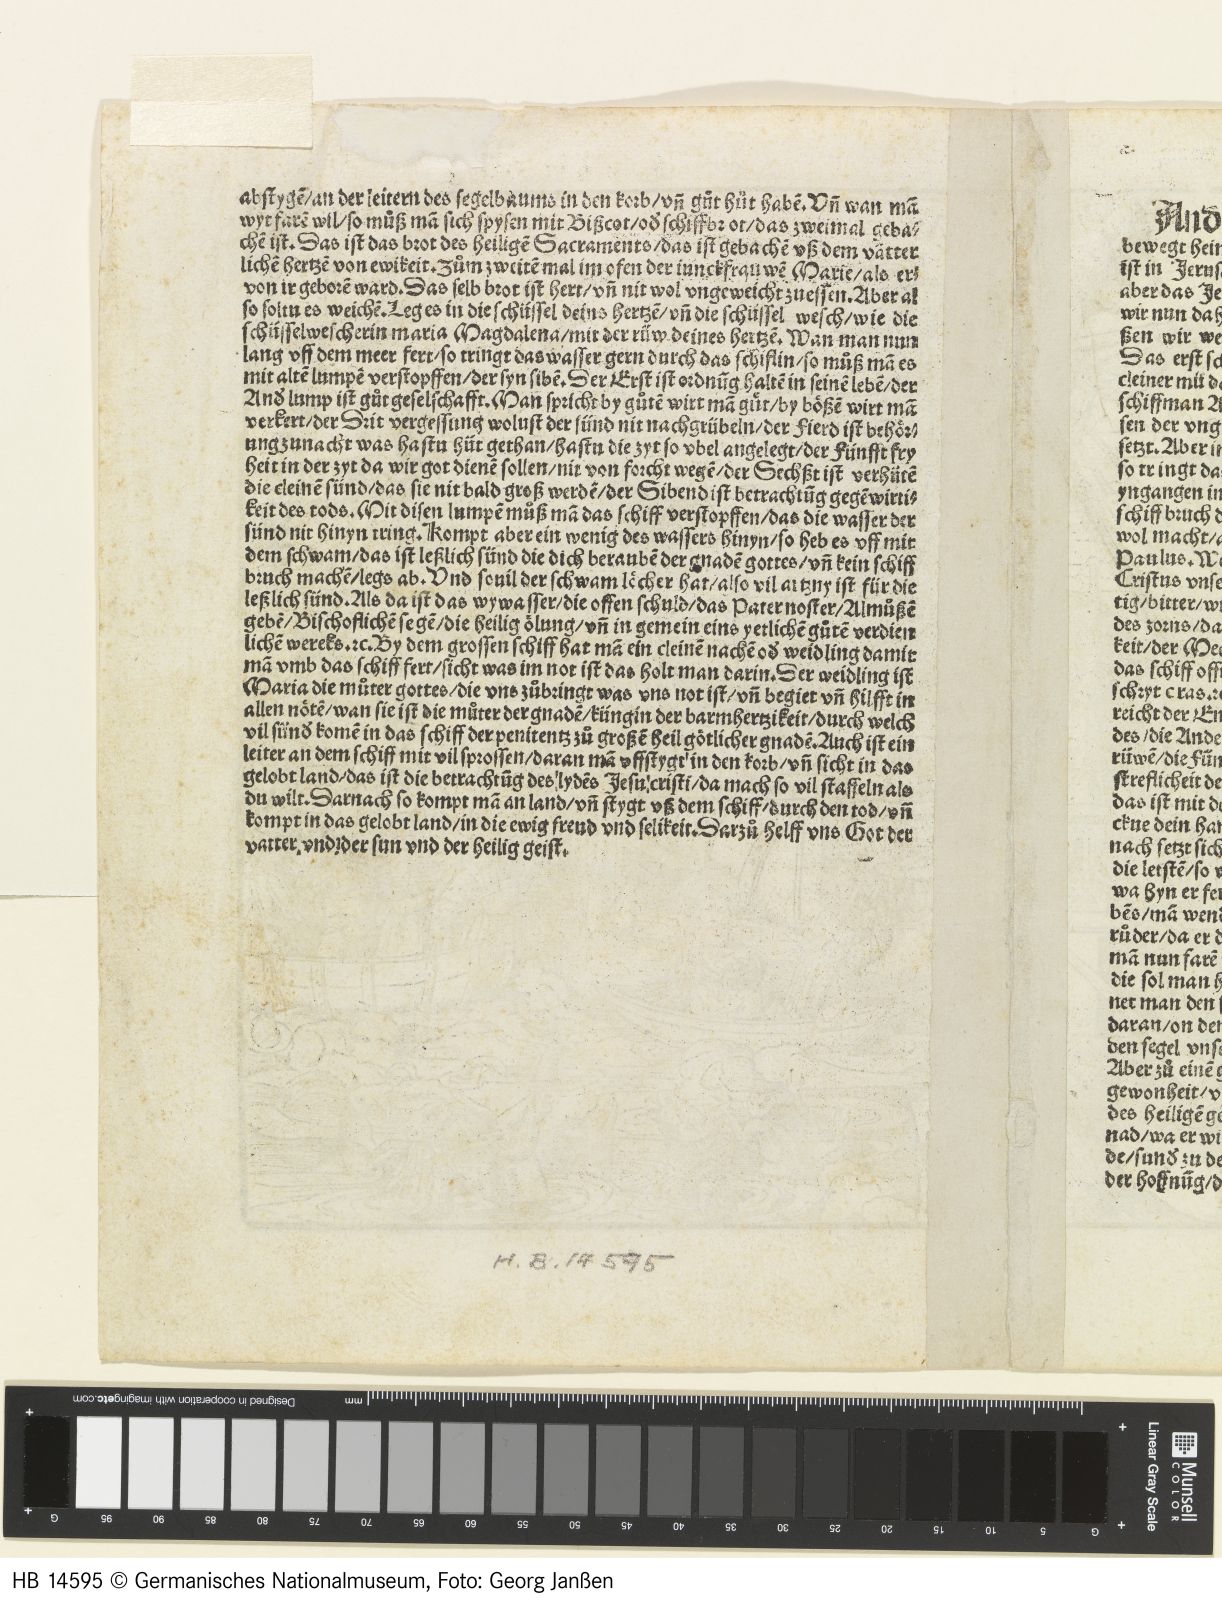 abstygẽ/an der leitern des segelbaums in den korb/vñ gůt hůt habẽ. Vñ wan mã
wyt farẽ wil/so můß mã sich spysen mit Bißcot/oď schiffbrot/das zweimal geba⸗
chẽ ist. Das ist das brot des heiligẽ Sacraments/das ist gebachẽ vß dem vätter
lichẽ hertzẽ von ewikeit. Zům zweitẽ mal im ofen der iunckfrauwẽ Marie/als er⸗
von ir geborẽ ward. Das selb brot ist hert/vñ nit wol vngeweicht zuessen. Aber al
so soltu es weichẽ. Leg es in die schüssel deins hertzẽ/vñ die schüssel wesch/wie die
schüsselwescherin maria Magdalena/mit der rüw deines hertzẽ. Wan man nun
lang vff dem meer fert/so tringt das wasser gern durch das schiflin/so můß mã es
mit altẽ lumpẽ verstopffen/der syn sibẽ. Der Erst ist ordnũg haltẽ in seinẽ lebẽ/der
Anď lump ist gůt geselschafft. Man spricht by gůtẽ wirt mã gůt/by bößẽ wirt mã
verkert/der Drit vergessung wolust der sünd nit nachgrübeln/der Fierd ist behör⸗
ung zunacht was hastu hüt gethan/hastu die zyt so vbel angelegt/der Fünfft fry
heit in der zyt da wir got dienẽ sollen/nit von forcht wegẽ/der Sechßt ist verhütẽ
die cleinẽ sünd/das sie nit bald groß werdẽ/der Sibend ist betrachtũg gegẽwirti⸗
keit des tods. Mit disen lumpẽ můß mã das schiff verstopffen/das die wasser der
sünd nit hinyn tring. Kompt aber ein wenig des wassers hinyn/so heb es vff mit
dem schwam/das ist leßlich sünd die dich beraubẽ der gnadẽ gottes/vñ kein schiff
bruch machẽ/legs ab. Vnd souil der schwam löcher hat/also vil artzny ist für die
leßlich sünd. Als da ist das wywasser/die offen schuld/das Pater noster/Almůßẽ
gebẽ/Bischoflichẽ segẽ/die heilig ölung/vñ in gemein eins yetlichẽ gůtẽ verdien
lichẽ wercks. ꝛc. By dem grossen schiff hat mã ein cleinẽ nachẽ oď weidling damit
mã vmb das schiff fert/sicht was im not ist das holt man darin. Der weidling ist
Maria die můter gottes/die vns zůbringt was vns not ist/vñ begiet vñ hilfft in
allen nötẽ/wan sie ist die můter der gnadẽ/küngin der barmhertzikeit/durch welch
vil sünď komẽ in das schiff der penitentz zů großẽ heil götlicher gnadẽ. Auch ist ein
leiter an dem schiff mit vil sprossen/daran mã vffstygt in den korb/vñ sicht in das
gelobt land/das ist die betrachtũg des lydẽs Jesu cristi/da mach so vil staffeln als
du wilt. Darnach so kompt mã an land/vñ stygt vß dem schiff/durch den tod/vñ
kompt in das gelobt land/in die ewig freud vnd selikeit. Darzů helff vns Got der
vatter, vnd der sun vnd der heilig geist.
H. B. 14595
And
bewegt
ist in
aber das
wir nun
ßen wir
Das erst
cleiner mit
schiffman
sen der
setzt. Aber
so tringt
yngangen
schiff bruch
wol macht/
Paulus.
Cristus
tig/bitter/
des zorns/
keit/der
das schiff
schryt cras.
reicht der
des/die
rüwẽ/die
streflicheit
das ist mit
ckne dein
nach setzt
die letstẽ/so
wa hyn er
bẽs/mã
růder/da er
mã nun farẽ
die sol man
net man den
daran/on
den segel
Aber zů einẽ
gewonheit/
des heiligẽ
nad/wa er
de/sunď zu
der hoffnũg/
Designed in cooperation with imagingetc.com
mm
G 95 90 85 80 75 70 65 60 55 50 45 40 35 30 25 20 15 10 5 G
Linear Gray Scale
Munsell
COLOR
HB 14595 © Germanisches Nationalmuseum, Foto: Georg Janßen